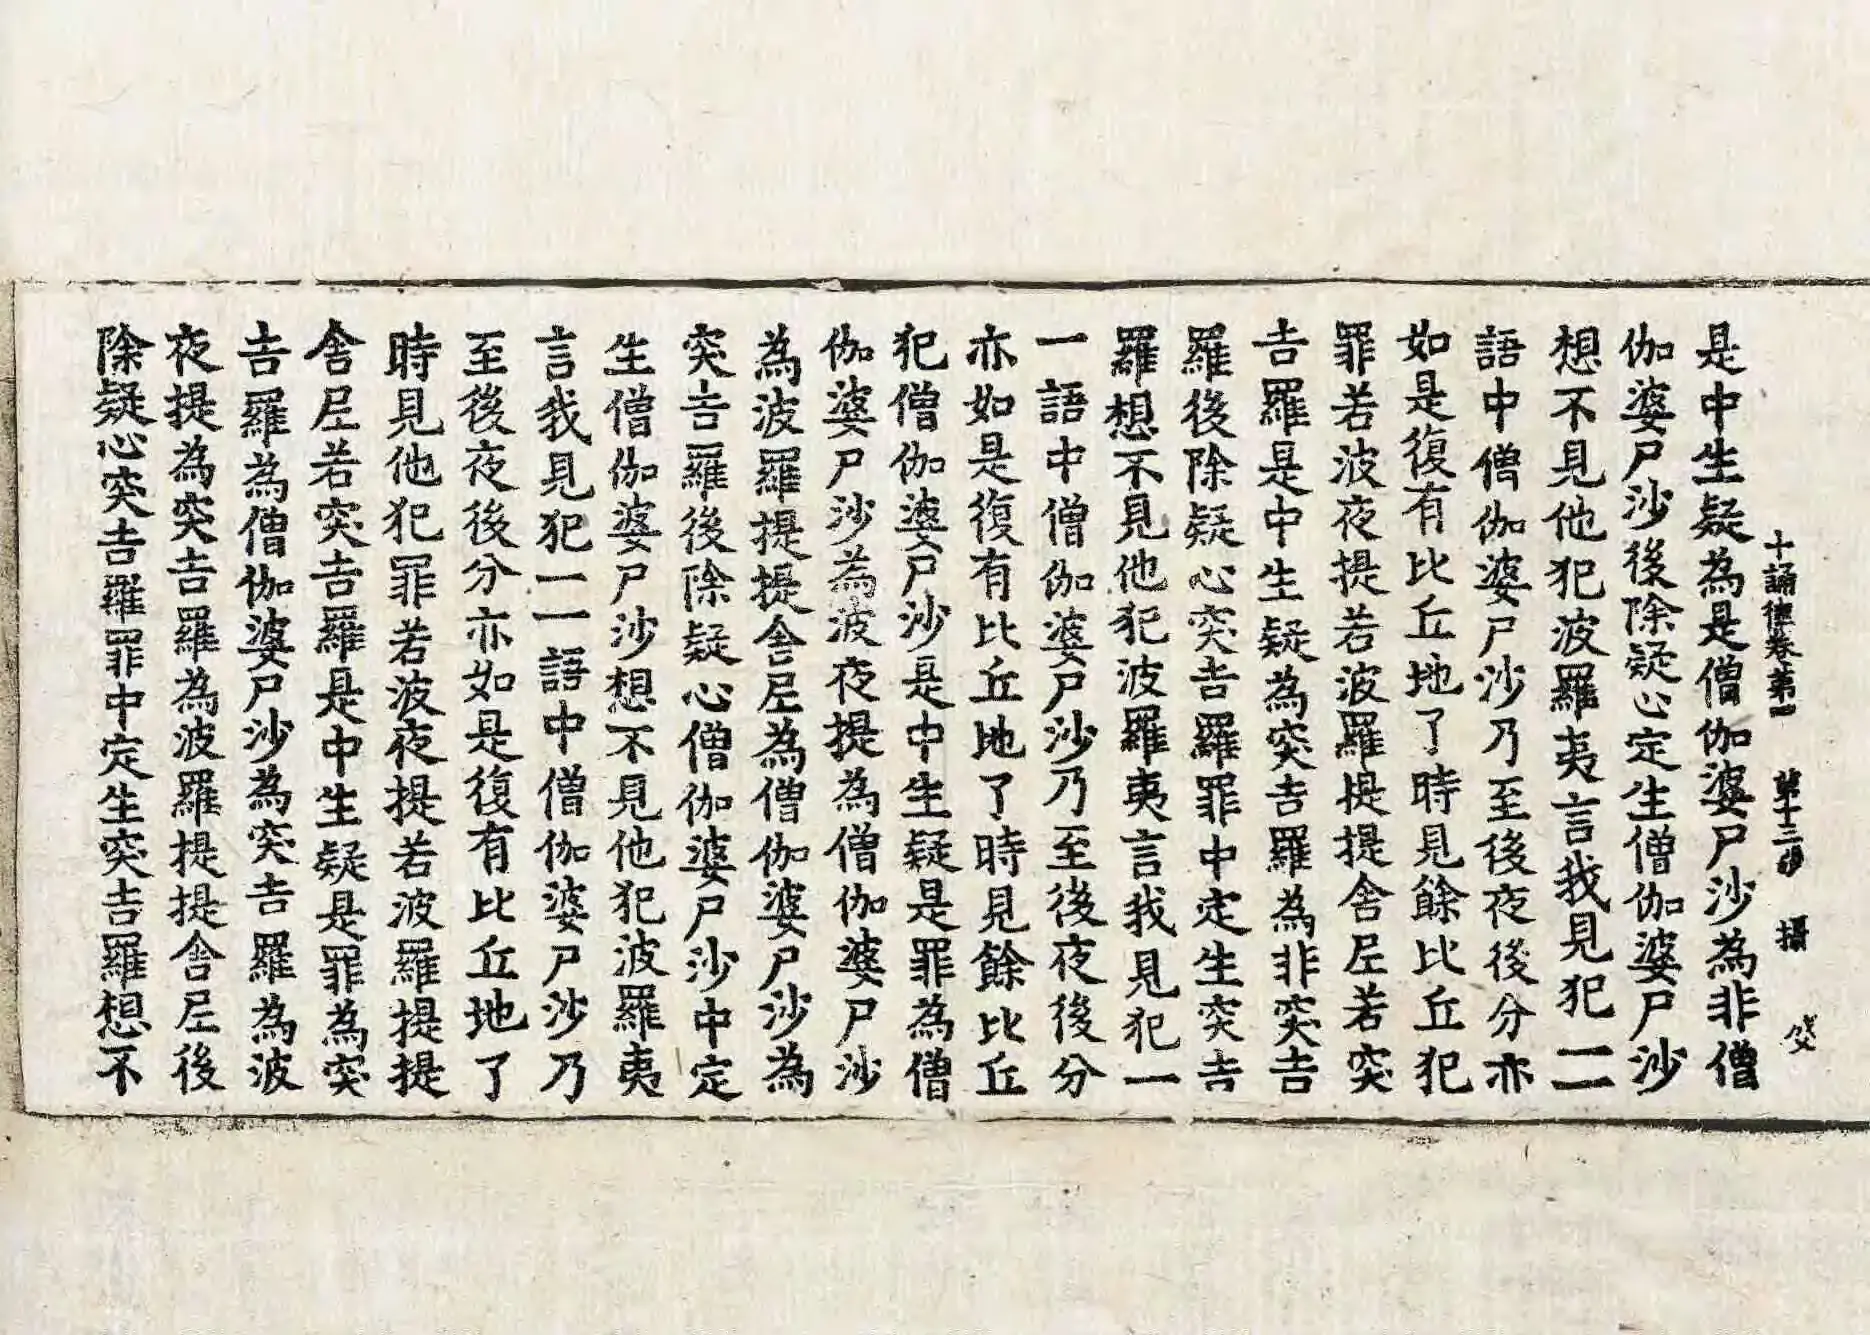 十誦律卷第四 第十三 攝
是中生疑為是僧伽婆尸沙為非僧
伽婆尸沙後除疑心定生僧伽婆尸沙
想不見他犯波羅夷言我見犯一一
語中僧伽婆尸沙乃至後夜後分亦
如是復有比丘地了時見餘比丘犯
罪若波夜提若波羅提提舍尼若突
吉羅是中生疑為突吉羅為非突吉
羅後除疑心突吉羅罪中定生突吉
羅想不見他犯波羅夷言我見犯一
一語中僧伽婆尸沙乃至後夜後分
亦如是復有比丘地了時見餘比丘
犯僧伽婆尸沙是中生疑是罪為僧
伽婆尸沙為波夜提為僧伽婆尸沙
為波羅提提舍尼為僧伽婆尸沙為
突吉羅後除疑心僧伽婆尸沙中定
生僧伽婆尸沙想不見他犯波羅夷
言我見犯一一語中僧伽婆尸沙乃
至後夜後分亦如是復有比丘地了
時見他犯罪若波夜提若波羅提提
舍尼若突吉羅是中生疑是罪為突
吉羅為僧伽婆尸沙為突吉羅為波
夜提為突吉羅為波羅提提舍尼後
除疑心突吉羅罪中定生突吉羅想不